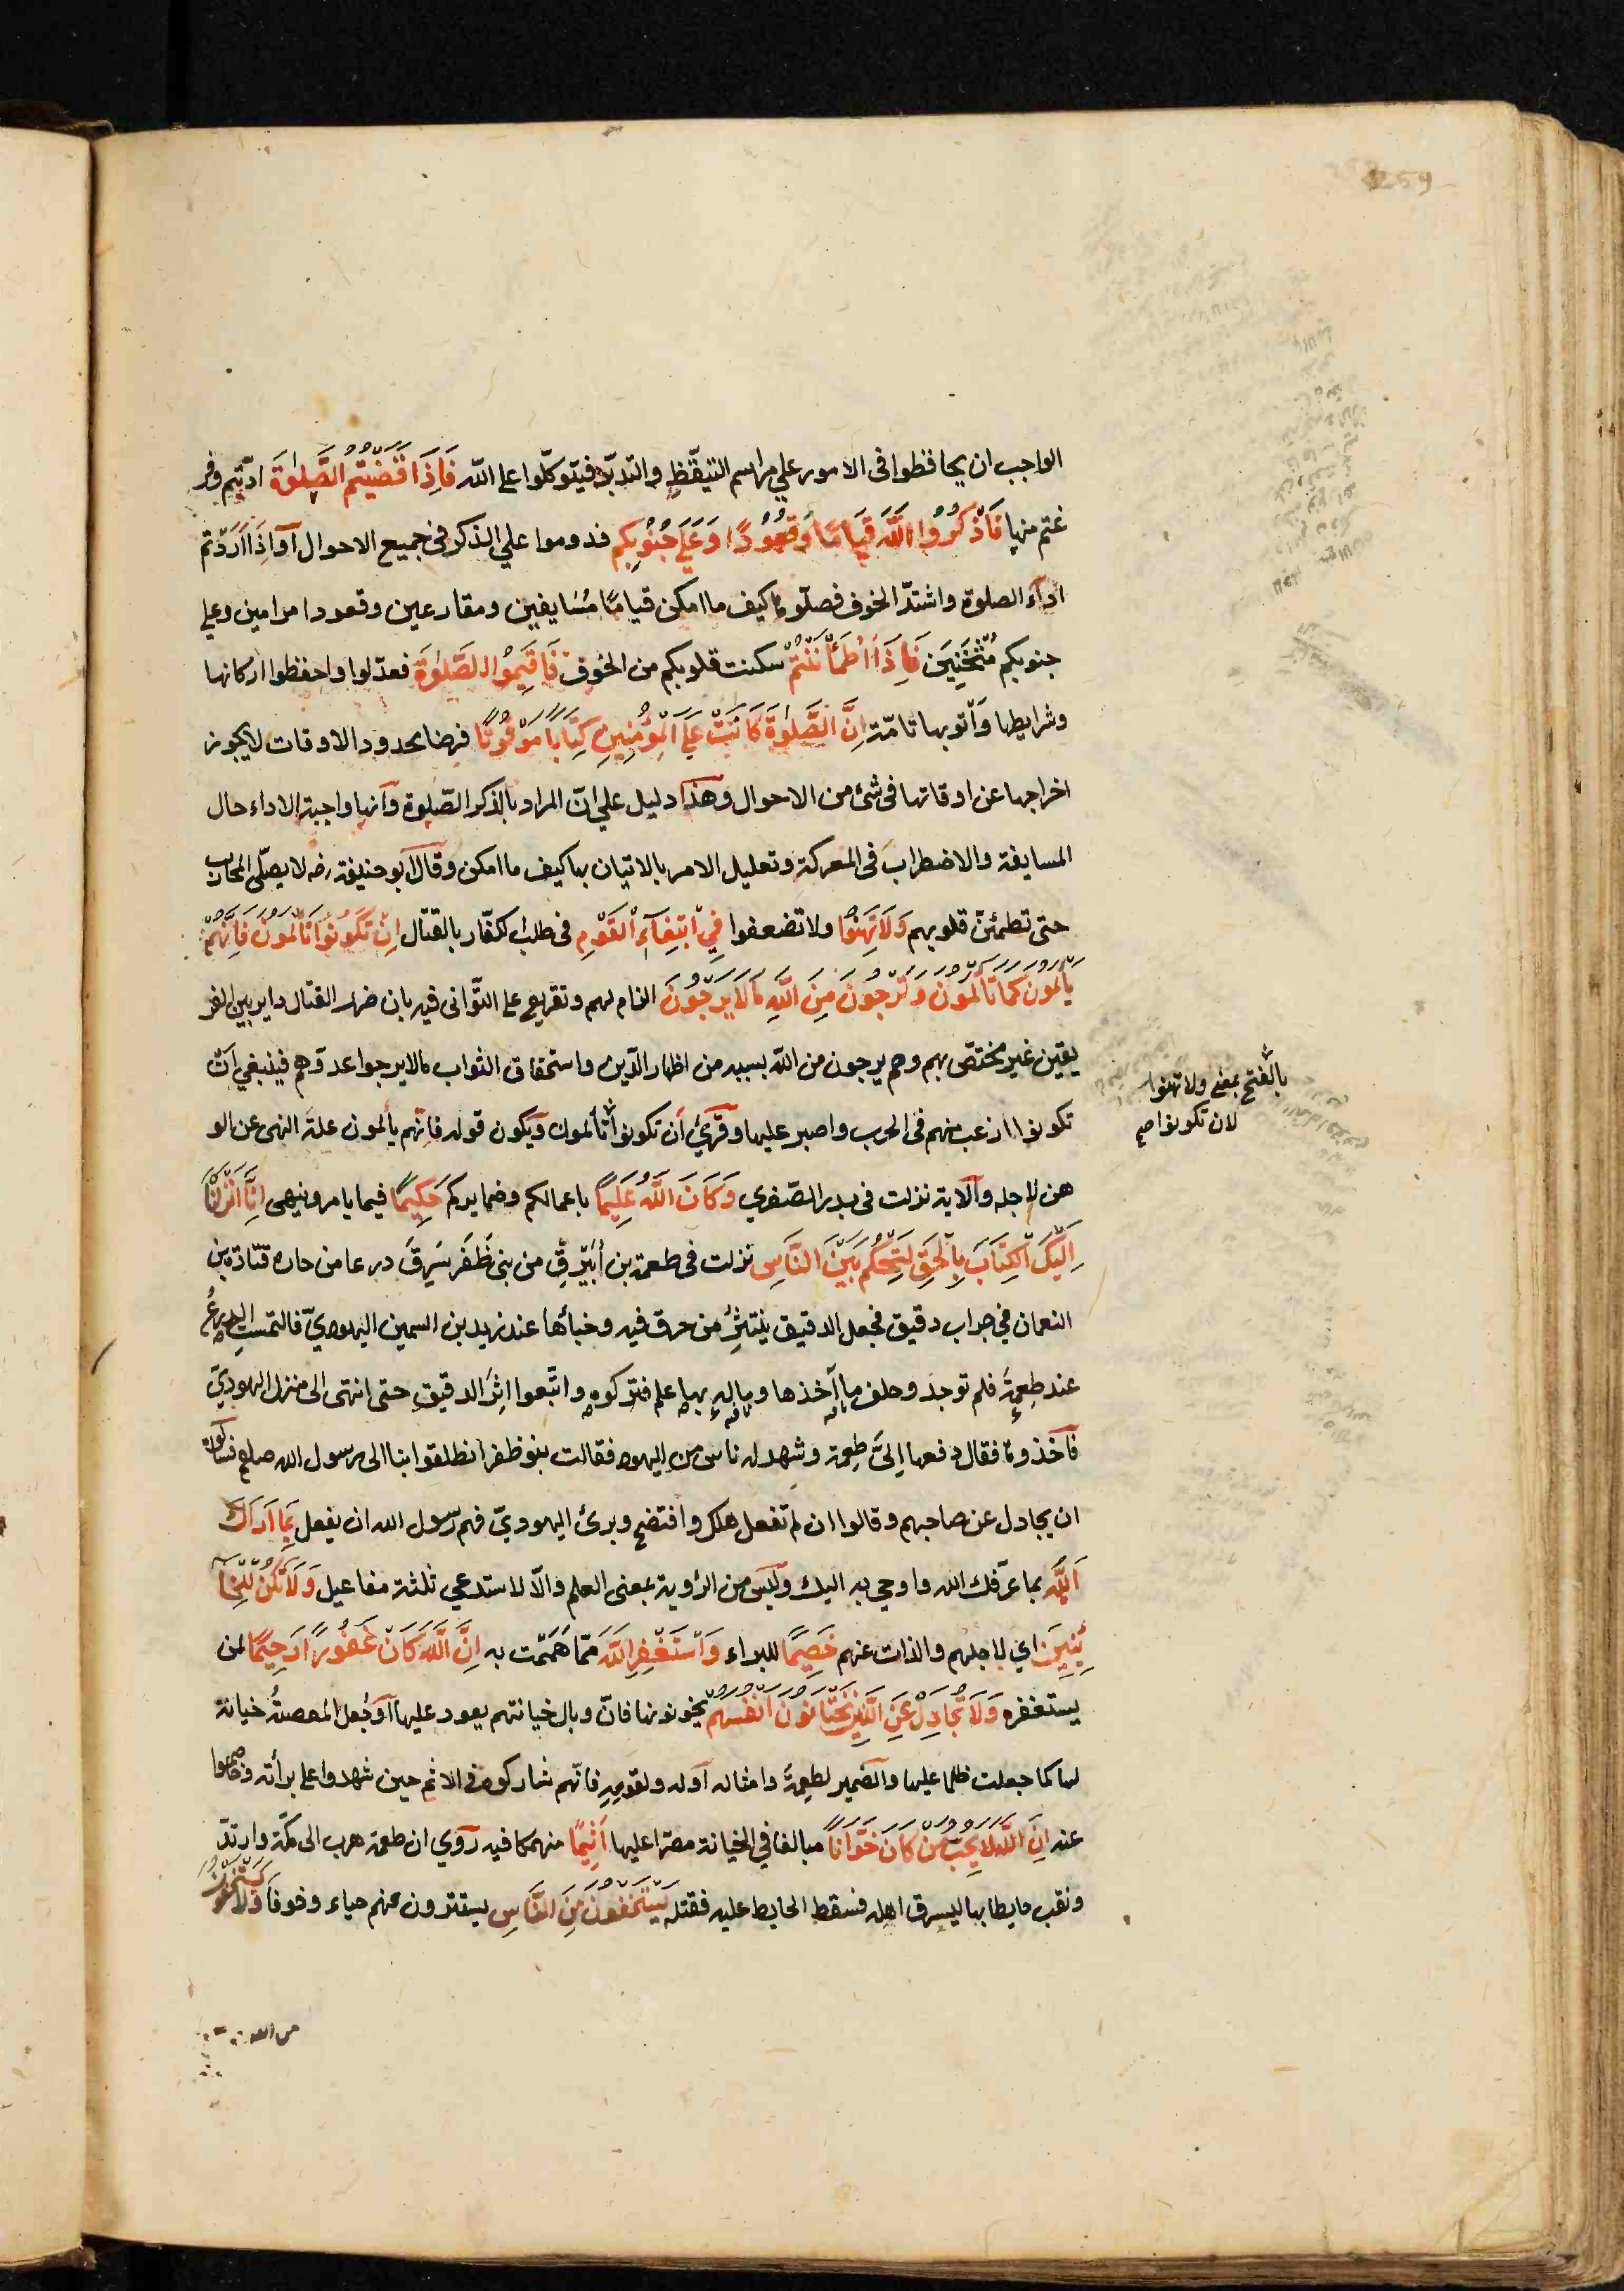 259
الواجب ان يحافظوا فى الامور علي مراسم التيقّظ والتدبّر فيتوكّلوا على اللّه فَاِذَا قَضَيْتُمُ الصَّلٰوةَ ادّيتم وفر
غتم منها فَاذْكُرُوا اللَّهَ قِيَامًا وَقُعُودًا وَعَلَى جُنُوبِكُم فدوموا علي الذكر فى جميع الاحوال اَوْ اِذَا اَرَدْتم
ادآء الصلوة واشتدّ الخوف فصلّوها كيف ما امكن قيامًا مُسَايفين ومقارعين وقعودا مرامين وعلي
جنوبكم مُثْخَنِيَن فَاِذَا اطْمَأْنَنْتُمْ سكنت قلوبكم من الخوف فَاَقِيمُوا الصَّلٰوةَ فعدّلوا واحفظوا اركانها
وشرايطها وَأْتوبها تامّة اِنَّ الصَّلٰوةَ كَانَتْ عَلَى الْمُؤْمِنِينَ كِتَابًا مَوْقُوتًا فرضا محدود الاوقات لا يجوز
اخراجها عن اوقاتها فى شئ من الاحوال وهذا دليل علي انّ المراد بالذكر الصّلوة وانها واجبة الاداء حال
المسايفة والاضطراب فى المعركة وتعليل الامر بالاتيان بها كيف ما امكن وقال ابو حنيفة رضه لا يصلّى المحارب
حتى تطمئنّ قلوبهم وَلَا تَهِنُوا ولا تضعفوا فِي ابْتِغَآءِ الْقَوْمِ فى طلب الكفّار بالقتال اِنْ تَكُونُوا تَأْلَمُونَ فَاِنَّهُمْ
يَأْلَمُونَ كَمَا تَأْلَمُونَ وَتَرْجُونَ مِنَ اللَّهِ مَا لَا يَرْجُونَ الزام لهم وتقريع على التّوانى فيه بان ضرر القتال داير بين الفر
يقين غير مختصّ بهم وهم يرجون من اللّه بسببه من اظهار الدّين واستحقاق الثواب ما لا يرجوا عدوّهم فينبغي ان
تكونوا ارغب منهم فى الحرب واصبر عليها وقُرِئ اَن تكونوا تألمون ويكون قوله فانّهم يألمون علة النهى عن الو
هن لاجله والآية نزلت فى بدر الصغري وَكَانَ اللَّهُ عَلِيمًا باعمالكم وضمايركم حَكِيمًا فيما يامر وينهى اِنَّا اَنْزَلْنَا
اِلَيْكَ الْكِتَابَ بِالْحَقِّ لِتَحْكُمَ بَيْنَ النَّاسِ نزلت فى طعمة بن اُبَيْرِقٍ من بنى ظَفَر سَرِقَ درعا من جاره قتادة بن
النعمان في جراب دقيق فجعل الدقيق ينتثِرُ من خرق فيه وخبأها عند زيد بن السمين اليهوديّ فالتمست الدرعُ
عند طعمةَ فلم توجد وحلف ما اخذها وما له بها علم فتركوه واتّبعوا اثرَ الدقيق حتى انتهى الى منزل اليهوديّ
فاَخذوها فقال دفعها اِليَّ طعمة وشهد له ناس من اليهود فقالت بنو ظفر انطلقوا بنا الى رسول الله صلعم فسألوه
ان يجادل عن صاحبهم وقالوا ان لم تفعل هلك وافتضح وبرئ اليهوديّ فهم رسول الله ان يفعل بِمَا اَرَاكَ
اللَّهُ بما عرّفك الله واوحي به اليك وليس من الرؤية بمعنى العلم والّا لاستدعي ثلثة مفاعيل وَلَا تَكُنْ لِلْخَآ
ئِنِينَ اي لاجلهم والذات عنهم خَصِيمًا للبراء وَاسْتَغْفِرِ اللَّهَ ممّا هَمَمْت به اِنَّ اللَّهَ كَانَ غَفُورًا رَحِيمًا لمن
يستغفره وَلَا تُجَادِلْ عَنِ الَّذِينَ يَخْتَانُونَ اَنْفُسَهُمْ يخونونها فانّ وبال خيانتهم يعود عليها اَوْ جعل المعصيةُ خيانة
لها كما جعلت ظلما عليها والضمير لطعمةَ وامثاله اَوله ولقومِهِ فانّهم شاركوه فى الاثم حين شهدوا على برأته وخاصموا
عنه اِنَّ اللَّهَ لَا يُحِبُّ مَنْ كَانَ خَوَّانًا مبالغا في الخيانة مصرّا عليها اَثِيمًا منهمكا فيه رُوي ان طعمة هرب الى مكّة وارتدّ
ونقب حايطا بها ليسرق اهله فسقط الحايط عليه فقتله يَسْتَخْفُونَ مِنَ النَّاسِ يستترون منهم حياء وخوفا وَلَا يَسْتَخْفُونَ
من الله
بالفتح بمعنى ولا تهنوا
لان تكونوا صح